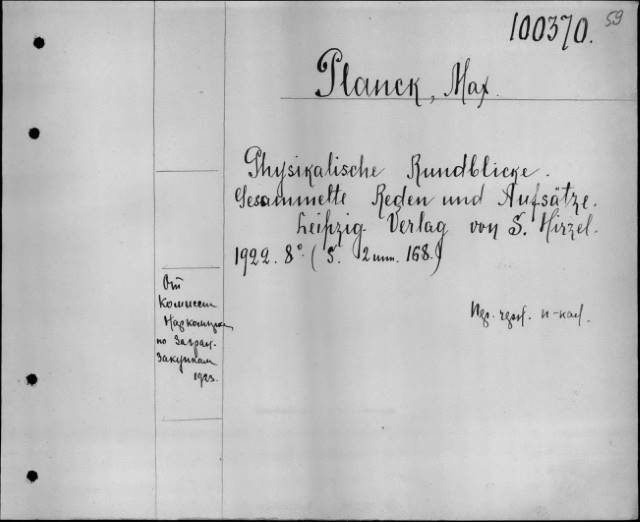 100370. 59
Planck, Max.
Physikalische Rundblicke.
Gesammelte Reden und Aufsätze.
Leipzig. Verlag von S. Hirzel.
1922. 8° (S. 2 unn. 168.)
От
Комиссии
Наркомпроса
по Загран.
Закупкам
1923.